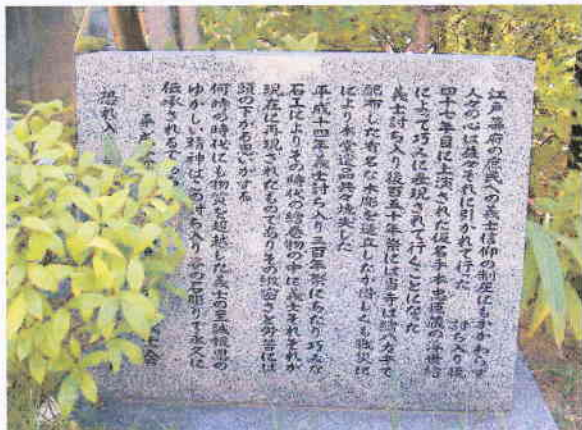 江戸幕府の庶民への義士信仰の制圧にもかかわらず
人々の心は益々それに引かれて行った 討ち入り後
四十七年目に上演された仮名手本忠臣蔵の浮世絵
によって巧みに表現されて行くことになった
義士討ち入り後百五十年祭には当寺は
配布した有名な木彫を造立したが惜しくも戦災に
により本堂遺品共々焼失した
平成十四年義士討ち入り三百年祭にあたり巧みな
石工によりその時代の絵巻物の中に義士それぞれが
現在に再現されたものでありその緻密さと労苦には
頭の下がる思いがする
何時の時代にも物質を超越した義士の至誠報恩の
ゆかしい精神はこの討ち入り姿の石彫りで永久に
伝承されるで
平成
恐れ入